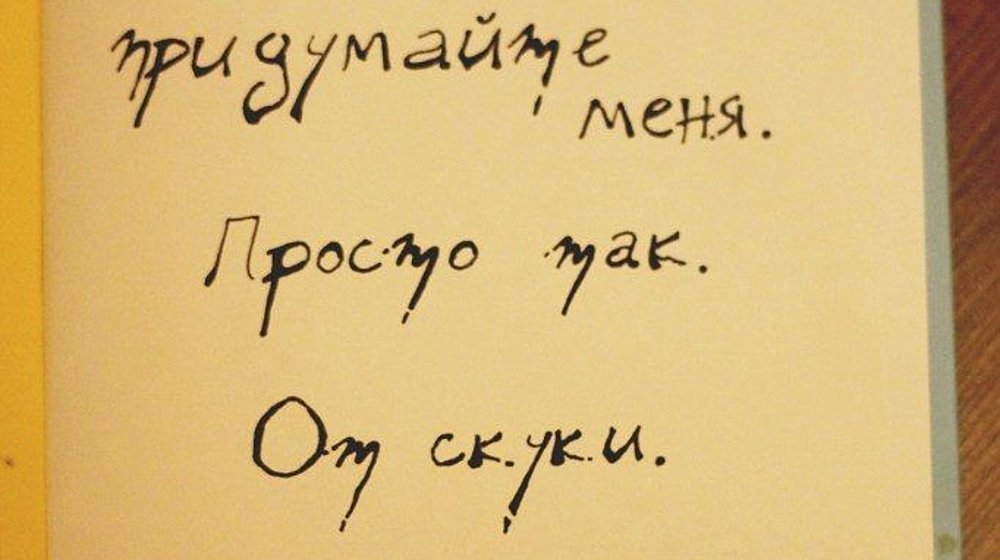 придумайте
меня.
Просто так.
От скуки.